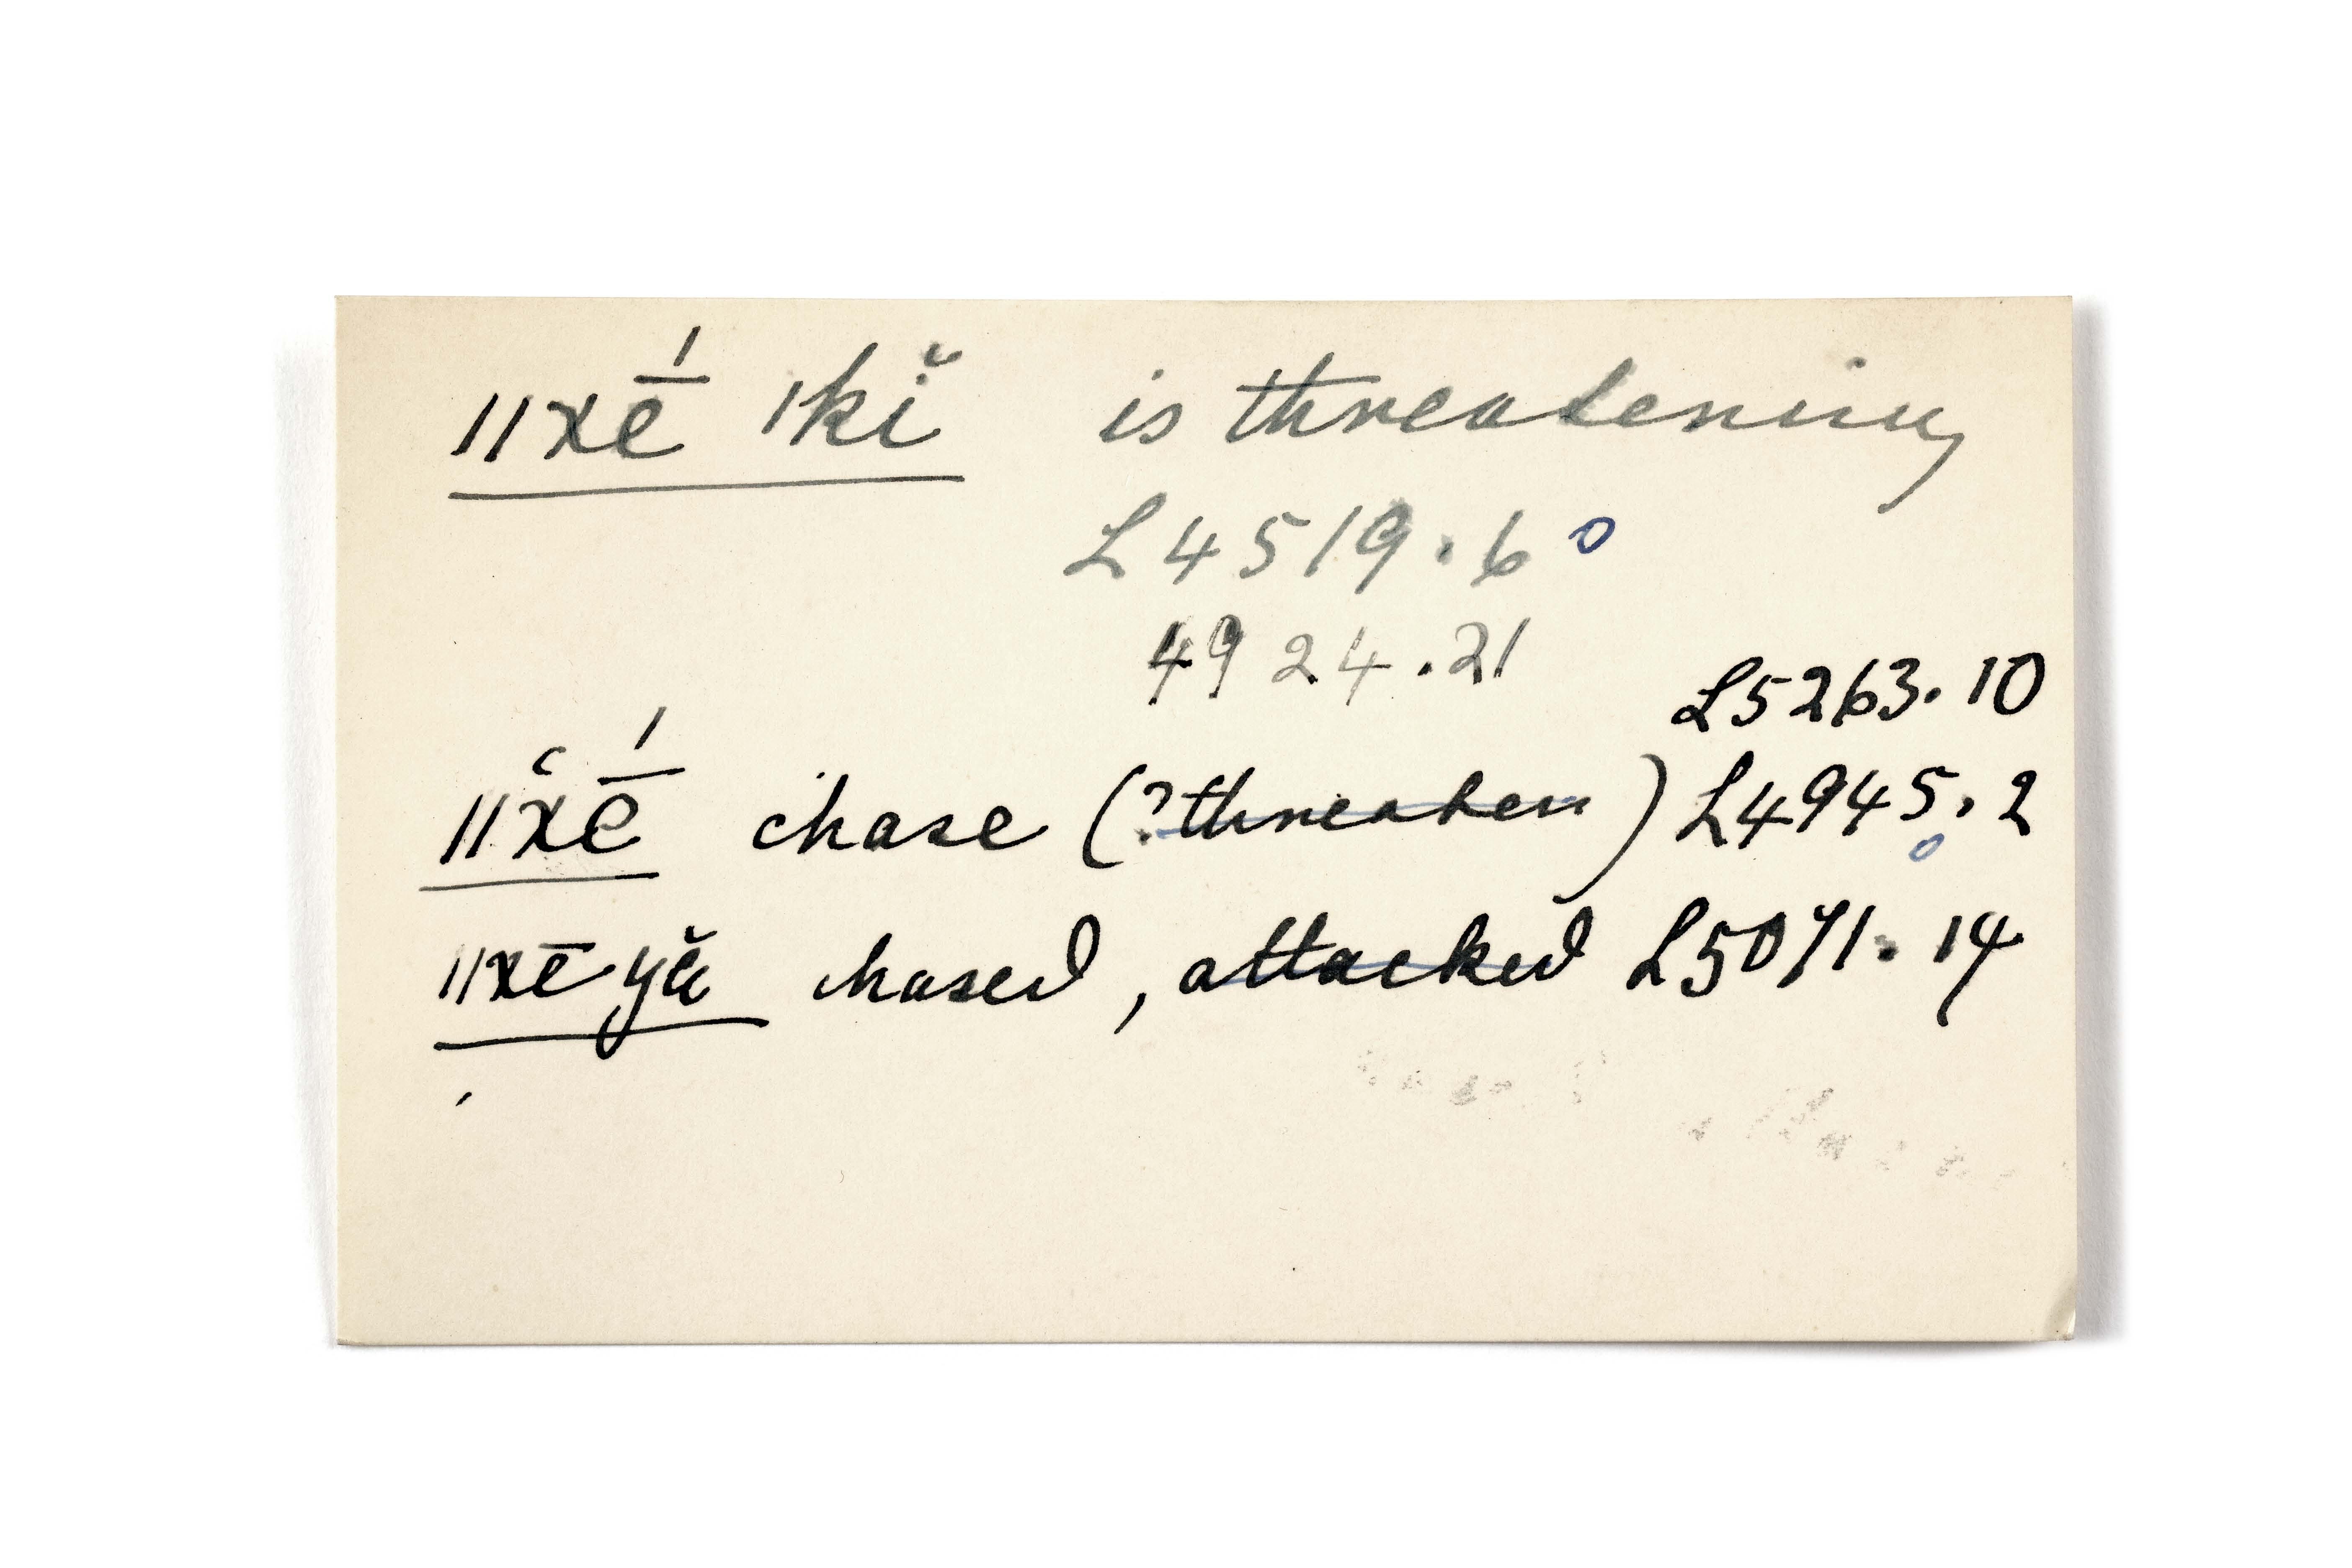 ǁxḗ ǀkĭ is threatening
L4519.6 o
4924.21
L5263.10
ǁx̌ḗ chase (? threaten) L4945.2
o
ǁxē yă chased, attacked L5071.14